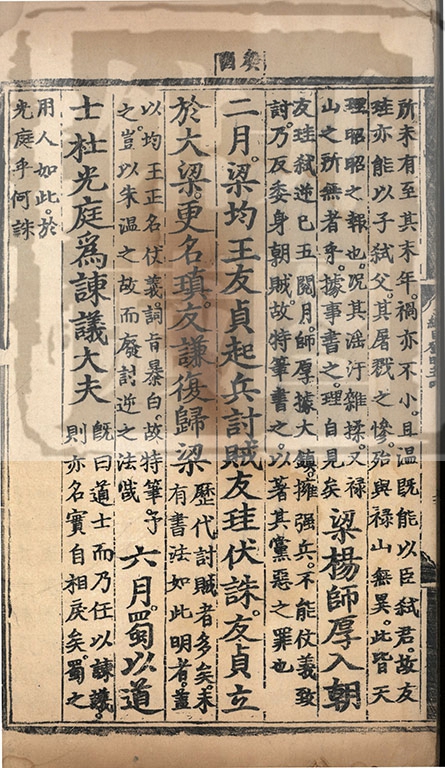 癸酉
所未有至其末年禍亦不小且溫既能以臣弑君故友
珪亦能以子弑父其屠戮之慘殆與祿山無異此皆天
理昭昭之報也況其滛汙雜揉又祿
山之所無者乎據事書之理自見矣
梁楊師厚入朝
友珪弑逆已五閱月師厚據大鎮擁强兵不能仗義致
討乃反委身朝賊故特筆書之以著其黨惡之罪也
二月梁均王友貞起兵討賊友珪伏誅友貞立
於大梁更名瑱友謙復歸梁
歷代討賊者多矣未
有書法如此明者蓋
以均王正名仗義詞旨暴白故特筆予
之豈以朱溫之故而廢討逆之法哉
六月蜀以道
士杜光庭爲諫議大夫
既曰道士而乃任以諫議
則亦名實自相戾矣蜀之
用人如此於
光庭乎何誅